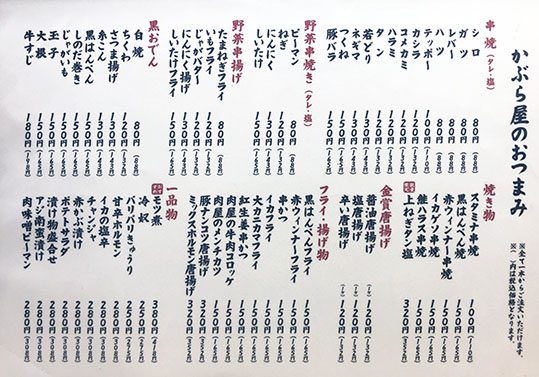 かぶら屋のおつまみ
※全て一本からご注文いただけます。
※( )内は税込価格となります。
串焼(タレ・塩)
シロ 80円(88円)
ガツ 80円(88円)
レバー 80円(88円)
ハツ 80円(88円)
テッポー 100円(110円)
カシラ 120円(132円)
コメカミ 120円(132円)
ハラミ 120円(132円)
タン 120円(132円)
若どり 130円(143円)
ネギマ 130円(143円)
つくね 150円(165円)
豚バラ 150円(165円)
野菜串焼き(タレ・塩)
ピーマン 130円(143円)
ねぎ 130円(143円)
にんにく 150円(165円)
しいたけ 150円(165円)
野菜串揚げ
たまねぎフライ 120円(132円)
いもフライ 120円(132円)
じゃがバター 120円(132円)
にんにく揚げ 150円(165円)
しいたけフライ 150円(165円)
黒おでん
白焼 80円(88円)
ちくわ 120円(132円)
さつま揚げ 130円(143円)
糸こん 130円(143円)
黒はんぺん 130円(143円)
しのだ巻き 150円(165円)
じゃがいも 150円(165円)
玉子 150円(165円)
大根 150円(165円)
牛すじ 180円(198円)
焼き物
スタミナ串焼 100円(110円)
黒はんぺん焼 150円(165円)
赤ウィンナー串焼 150円(165円)
イカゲソ串焼 150円(165円)
鮭ハラス串焼 150円(165円)
上ねぎタン塩 320円(352円)
金賞唐揚げ
醤油唐揚げ 120円(132円)
塩唐揚げ 120円(132円)
辛い唐揚げ 120円(132円)
フライ・揚げ物
黒はんぺんフライ 150円(165円)
赤ウィンナーフライ 150円(165円)
串かつ 150円(165円)
イカフライ 150円(165円)
大カニカマフライ 150円(165円)
紅生姜串かつ 150円(165円)
肉屋の牛肉コロッケ 150円(165円)
肉屋のメンチカツ 150円(165円)
豚ナンコツ唐揚げ 320円(352円)
ミックスホルモン唐揚げ 320円(352円)
一品物
モツ煮 380円(418円)
冷奴 250円(275円)
パリパリきゅうり 250円(275円)
甘辛ホルモン 280円(308円)
イカの塩辛 280円(308円)
チャンジャ 280円(308円)
赤かぶ漬け 280円(308円)
ポテトサラダ 280円(308円)
漬け物盛合せ 280円(308円)
アジ南蛮漬け 280円(308円)
肉味噌ピーマン 280円(308円)